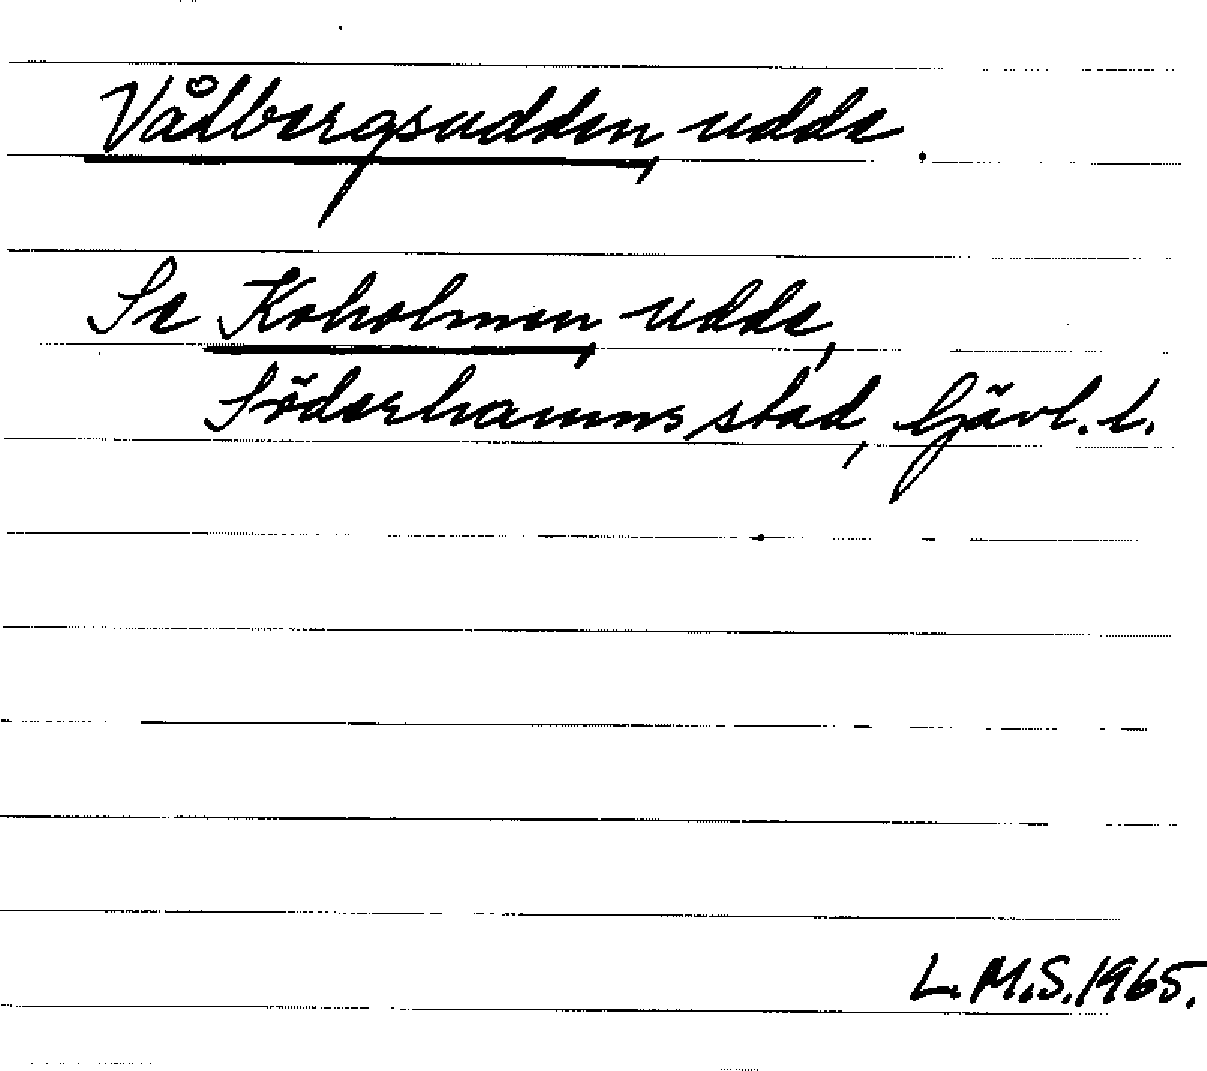 Vålbergsudden, udde.
Se Koholmen, udde,
Söderhamns stad, Gävl. l.
L.M.S. 1965.